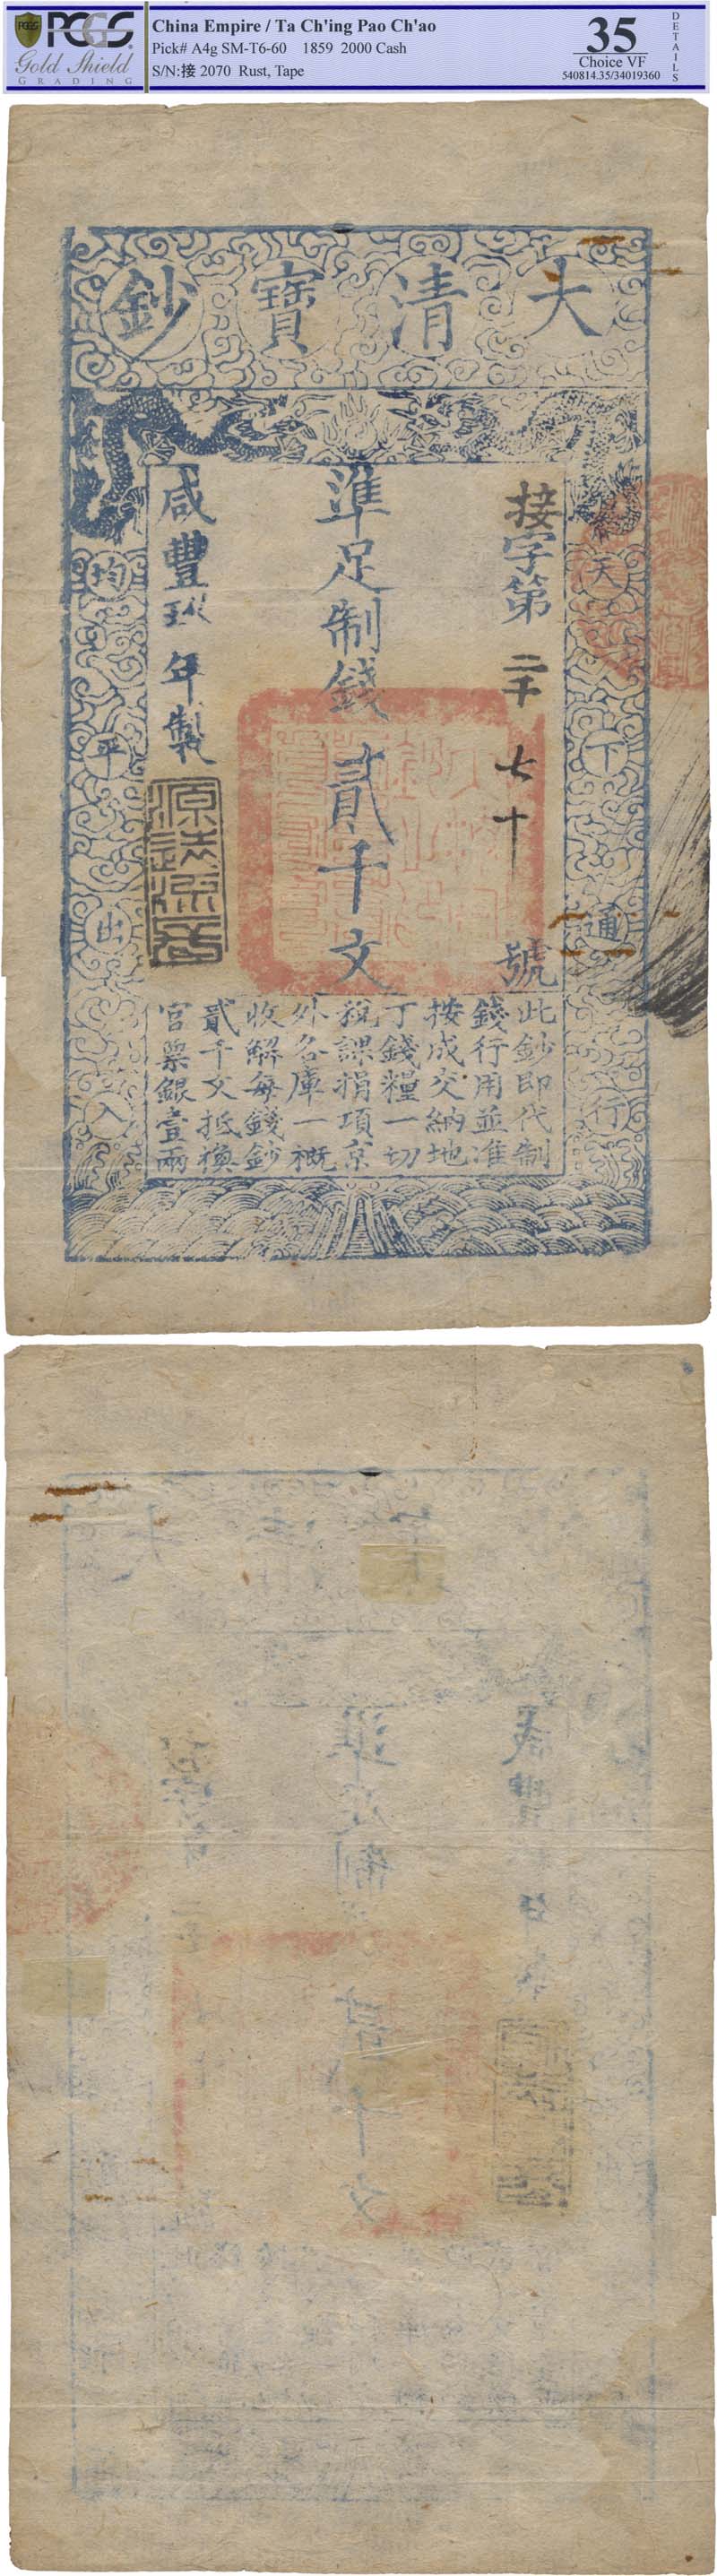 PCGS
PCGS
Gold Shield
GRADING
China Empire / Ta Ch'ing Pao Ch'ao
Pick# A4g SM-T6-60 1859 2000 Cash
S/N:接 2070 Rust, Tape
35
Choice VF
540814.35/34019360
DETAILS
大清寶鈔
天下通行
均平出入
接字第二千七十號
準足制錢貳千文
咸豐玖年製
此鈔即代制
錢行用並准
按成交納地
丁錢糧一切
稅課捐項京
外各庫一概
收解每錢鈔
貳千文抵換
官票銀壹兩